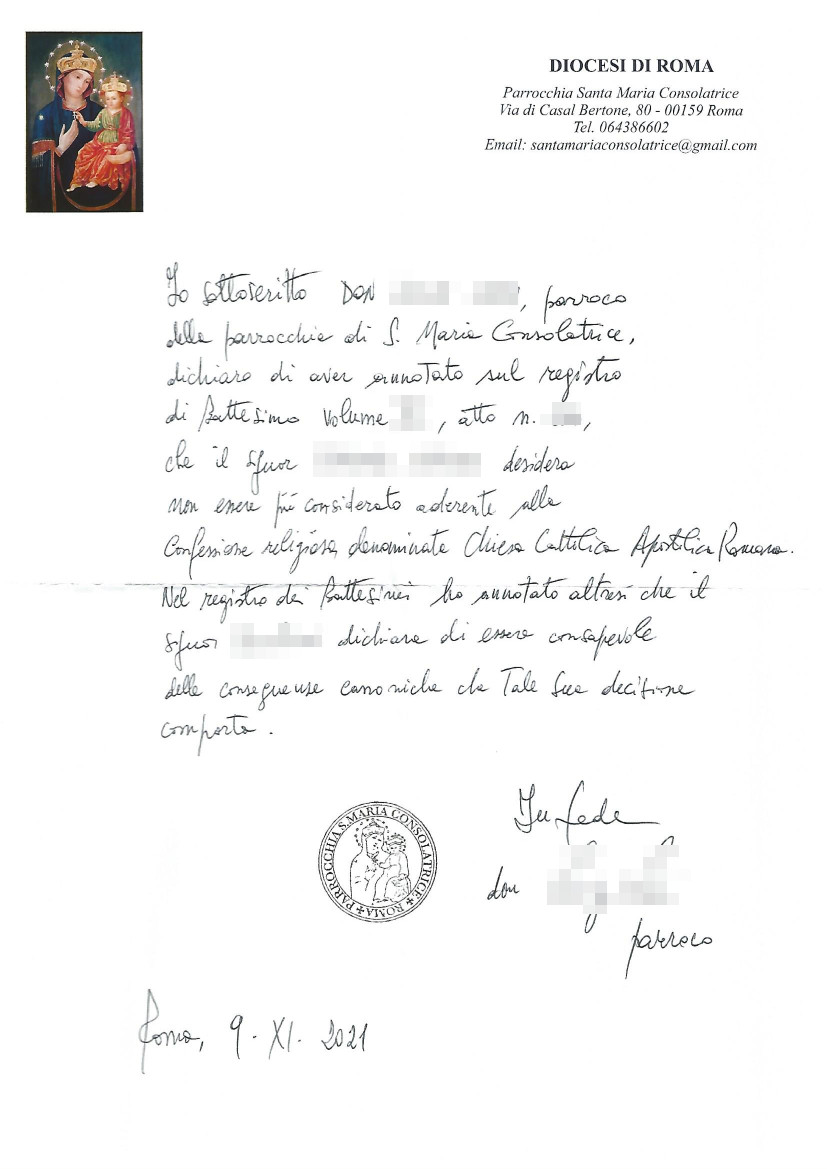 DIOCESI DI ROMA
Parrocchia Santa Maria Consolatrice
Via di Casal Bertone, 80 - 00159 Roma
Tel. 064386602
Email: santamariaconsolatrice@gmail.com
Io sottoscritto DON , parroco
della parrocchia di S. Maria Consolatrice,
dichiaro di aver annotato sul registro
di Battesimo Volume , atto n. ,
che il signor desidera
non essere più considerato aderente alla
Confessione religiosa denominata Chiesa Cattolica Apostolica Romana.
Nel registro dei Battesimi ho annotato altresì che il
signor dichiara di essere consapevole
delle conseguenze canoniche che Tale Sua decisione
comporta.
PARROCCHIA S.MARIA CONSOLATRICE
ROMA
In fede
don
parroco
Roma, 9. XI. 2021